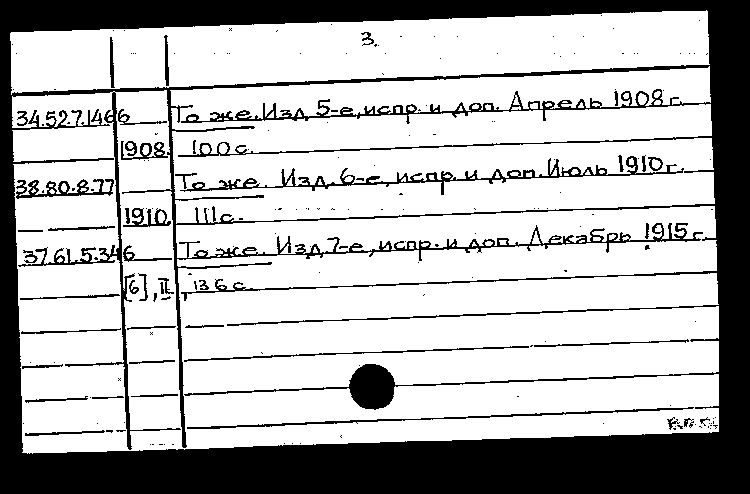 3.
34.52.7.1466 То же. Изд. 5-е, испр. и доп. Апрель 1908 г.
1908. 100 с.
38.80.8.77 То же. Изд. 6-е, испр. и доп. Июль 1910 г.
1910. 111 с.
37.61.5.346 То же. Изд. 7-е, испр. и доп. Декабрь 1915 г.
[6], II, 136 с.